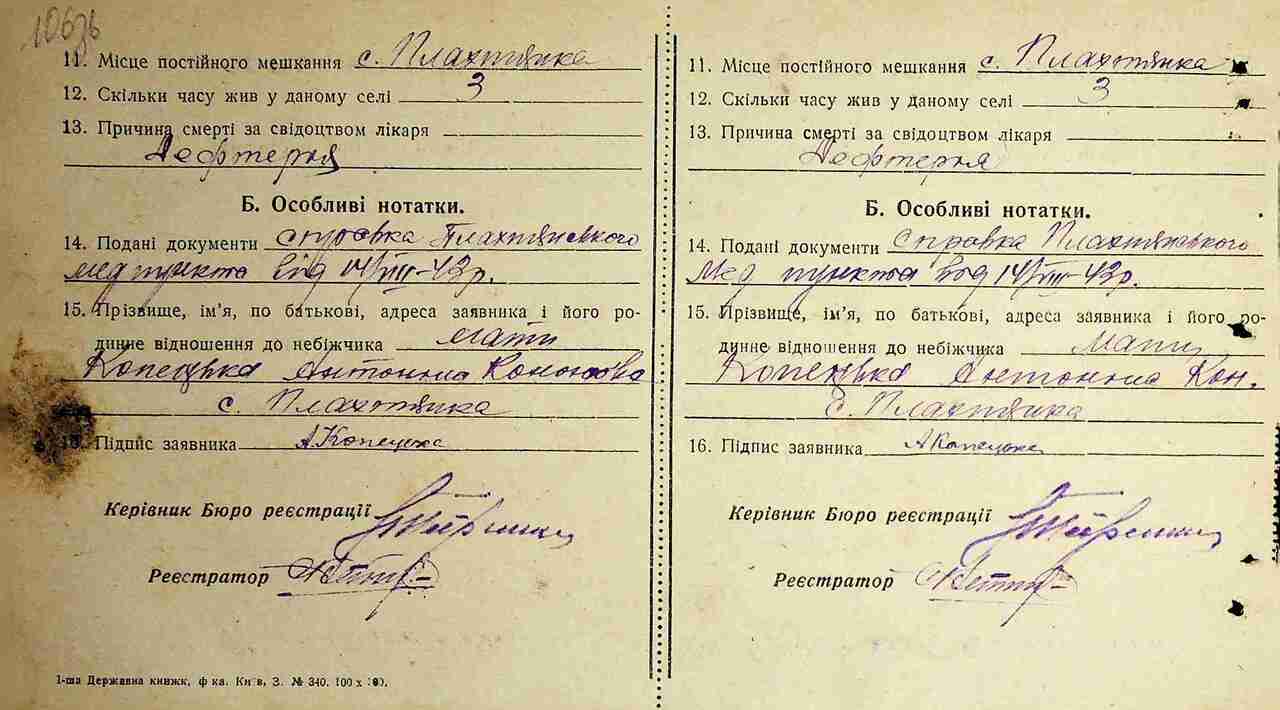 106зв
11. Місце постійного мешкання с. Плахтянка
12. Скільки часу жив у даному селі 3
13. Причина смерті за свідоцтвом лікаря
Дефтерия
Б. Особливі нотатки.
14. Подані документи справка Плахтянського
мед пункта від 14/VIII-42р.
15. Прізвище, ім’я, по батькові, адреса заявника і його ро-
динне відношення до небіжчика мати
Копецька Антонина Кононова
с. Плахтянка
16. Підпис заявника А Копецька
Керівник Бюро реєстрації
Реєстратор
1-ша Державна книжк. ф ка. Київ, З. № 340. 100 х 100.
11. Місце постійного мешкання с. Плахтянка
12. Скільки часу жив у даному селі 3
13. Причина смерті за свідоцтвом лікаря
Дефтерия
Б. Особливі нотатки.
14. Подані документи Справка Плахтянського
Мед пункта від 14/VIII-42р.
15. Прізвище, ім’я, по батькові, адреса заявника і його ро-
динне відношення до небіжчика мати
Копецька Антонина Кон.
с. Плахтянка
16. Підпис заявника А Копецька
Керівник Бюро реєстрації
Реєстратор